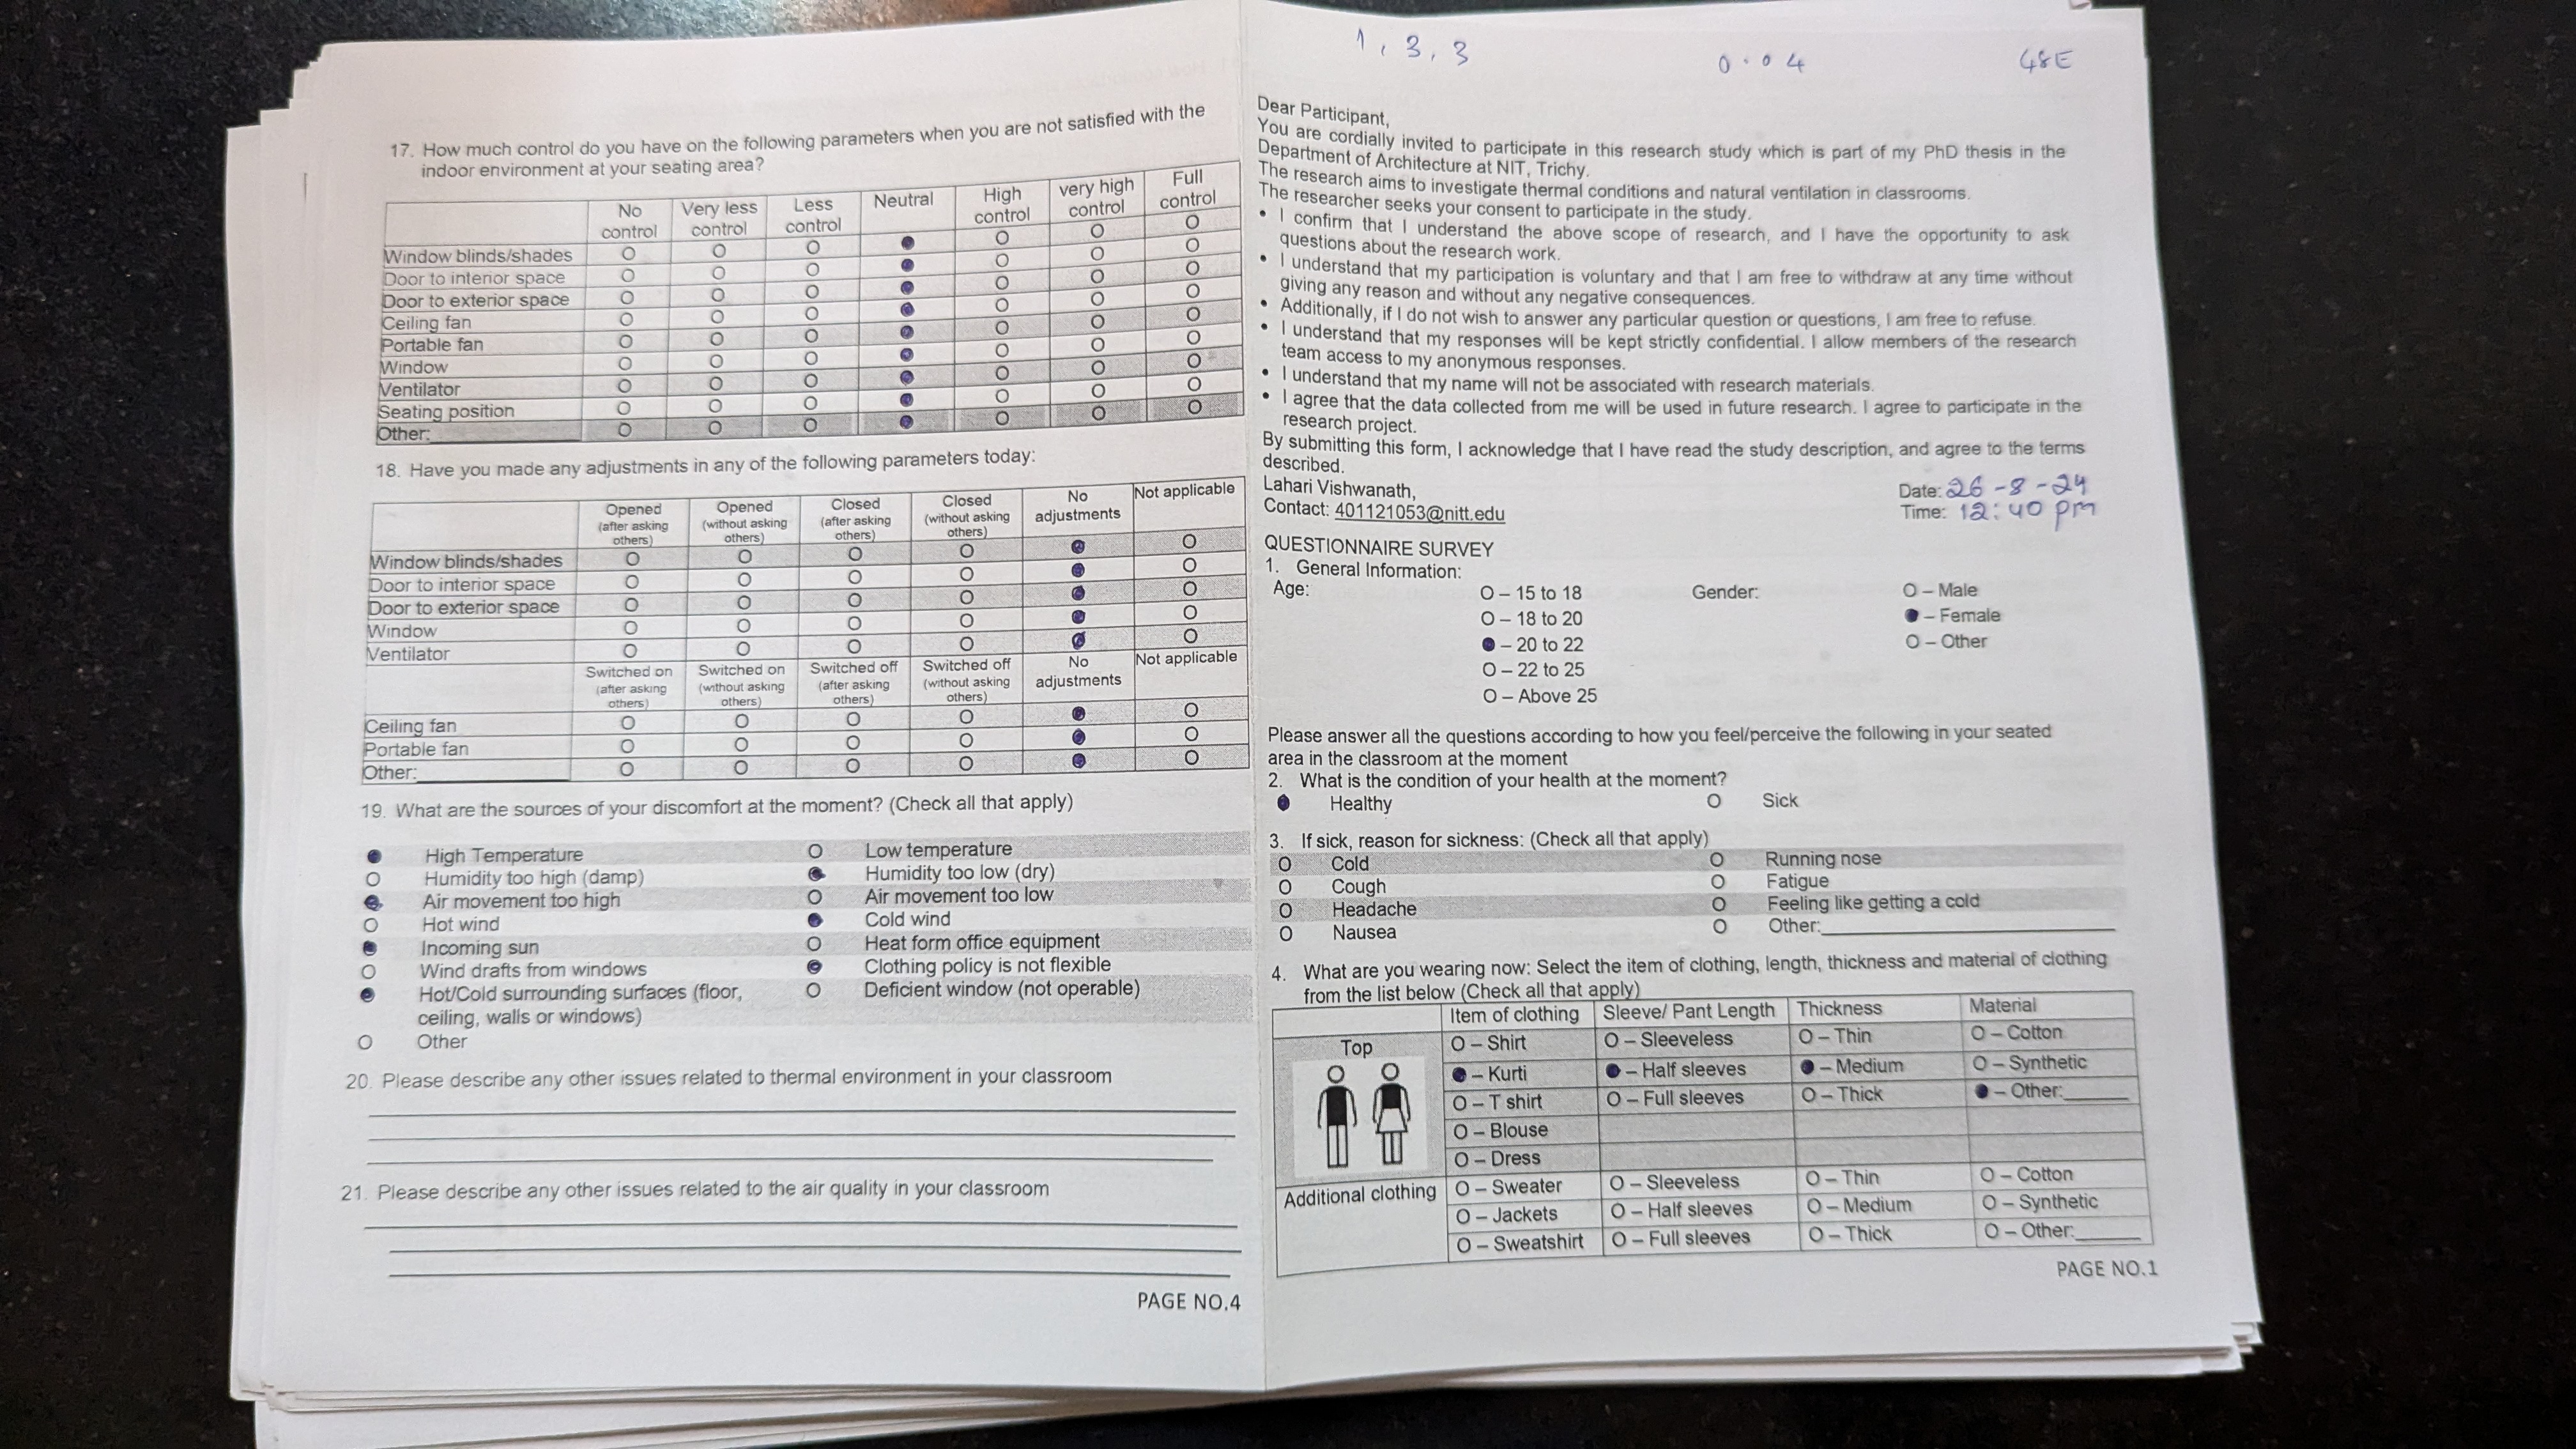 17. How much control do you have on the following parameters when you are not satisfied with the
indoor environment at your seating area?
No control Very less control Less control Neutral High control very high control Full control
Window blinds/shades O O O ● O O O
Door to interior space O O O ● O O O
Door to exterior space O O O ● O O O
Ceiling fan O O O ● O O O
Portable fan O O O ● O O O
Window O O O ● O O O
Ventilator O O O ● O O O
Seating position O O O ● O O O
Other: O O O ● O O O
18. Have you made any adjustments in any of the following parameters today:
Opened (after asking others) Opened (without asking others) Closed (after asking others) Closed (without asking others) No adjustments Not applicable
Window blinds/shades O O O O ● O
Door to interior space O O O O ● O
Door to exterior space O O O O ● O
Window O O O O ● O
Ventilator O O O O ● O
Switched on (after asking others) Switched on (without asking others) Switched off (after asking others) Switched off (without asking others) No adjustments Not applicable
Ceiling fan O O O O ● O
Portable fan O O O O ● O
Other: O O O O ● O
19. What are the sources of your discomfort at the moment? (Check all that apply)
● High Temperature O Low temperature
O Humidity too high (damp) ● Humidity too low (dry)
● Air movement too high O Air movement too low
O Hot wind ● Cold wind
● Incoming sun O Heat form office equipment
O Wind drafts from windows ● Clothing policy is not flexible
● Hot/Cold surrounding surfaces (floor, O Deficient window (not operable)
ceiling, walls or windows)
O Other
20. Please describe any other issues related to thermal environment in your classroom
21. Please describe any other issues related to the air quality in your classroom
PAGE NO.4
1, 3, 3 0.04 48E
Dear Participant,
You are cordially invited to participate in this research study which is part of my PhD thesis in the
Department of Architecture at NIT, Trichy.
The research aims to investigate thermal conditions and natural ventilation in classrooms.
The researcher seeks your consent to participate in the study.
• I confirm that I understand the above scope of research, and I have the opportunity to ask
questions about the research work.
• I understand that my participation is voluntary and that I am free to withdraw at any time without
giving any reason and without any negative consequences.
• Additionally, if I do not wish to answer any particular question or questions, I am free to refuse.
• I understand that my responses will be kept strictly confidential. I allow members of the research
team access to my anonymous responses.
• I understand that my name will not be associated with research materials.
• I agree that the data collected from me will be used in future research. I agree to participate in the
research project.
By submitting this form, I acknowledge that I have read the study description, and agree to the terms
described.
Lahari Vishwanath, Date: 26-8-24
Contact: 401121053@nitt.edu Time: 12:40 pm
QUESTIONNAIRE SURVEY
1. General Information:
Age: O – 15 to 18 Gender: O – Male
O – 18 to 20 ● – Female
● – 20 to 22 O – Other
O – 22 to 25
O – Above 25
Please answer all the questions according to how you feel/perceive the following in your seated
area in the classroom at the moment
2. What is the condition of your health at the moment?
● Healthy O Sick
3. If sick, reason for sickness: (Check all that apply)
O Cold O Running nose
O Cough O Fatigue
O Headache O Feeling like getting a cold
O Nausea O Other:
4. What are you wearing now: Select the item of clothing, length, thickness and material of clothing
from the list below (Check all that apply)
Item of clothing Sleeve/ Pant Length Thickness Material
Top O – Shirt O – Sleeveless O – Thin O – Cotton
● – Kurti ● – Half sleeves ● – Medium O – Synthetic
O – T shirt O – Full sleeves O – Thick ● – Other:
O – Blouse
O – Dress
Additional clothing O – Sweater O – Sleeveless O – Thin O – Cotton
O – Jackets O – Half sleeves O – Medium O – Synthetic
O – Sweatshirt O – Full sleeves O – Thick O – Other:
PAGE NO.1